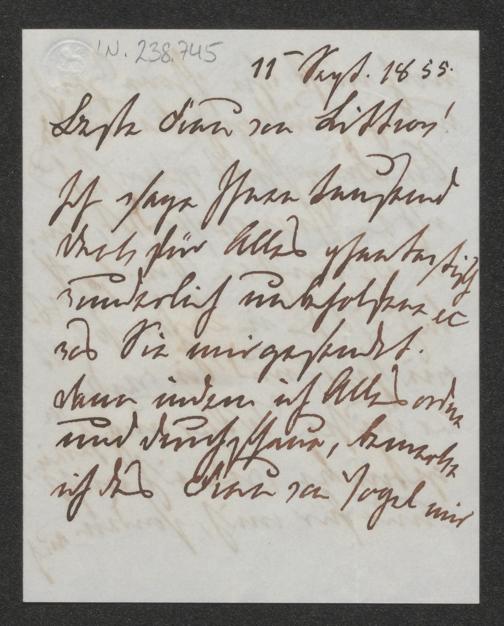 I.N. 238.745
11 Sept. 1855.
Beste Frau von Littrow!
Ich sage Ihnen tausend
Dank für Alles phantastisch
wunderlich unbeholfene ec
was Sie mir gesendet.
denn indem ich Alles ordne
und durchschaue, bemerke
ich das Frau von Vogel mir